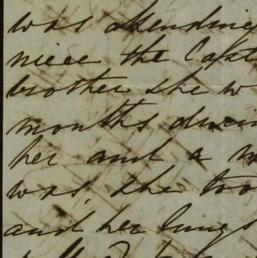 was attending
niece the Capt
brother she w
months durin
her and a
was, she too
and her lungs